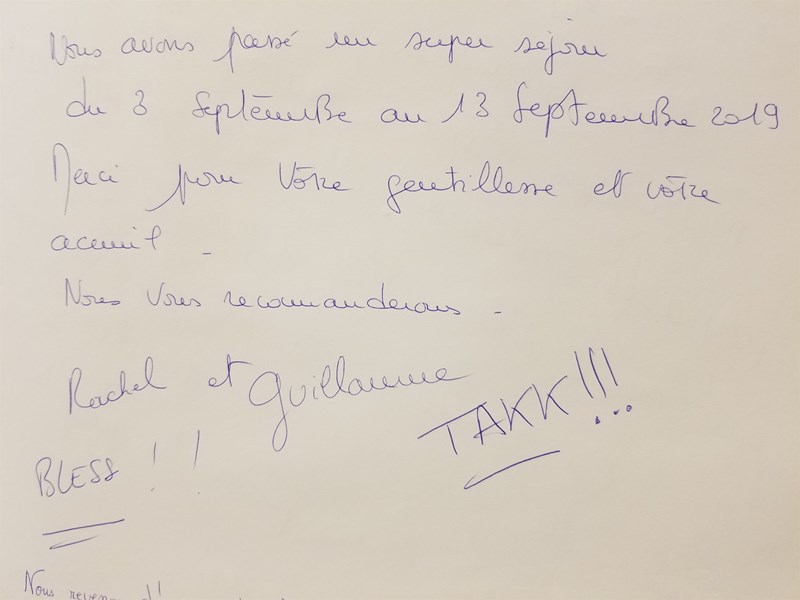 Nous avons passé un super séjour
du 3 Septembre au 13 Septembre 2019
Merci pour Vôtre gentillesse et vôtre
acceuil.
Nous Vous recommanderons.
Rachel et Guillaume
TAKK!!!
BLESS!!
Nous